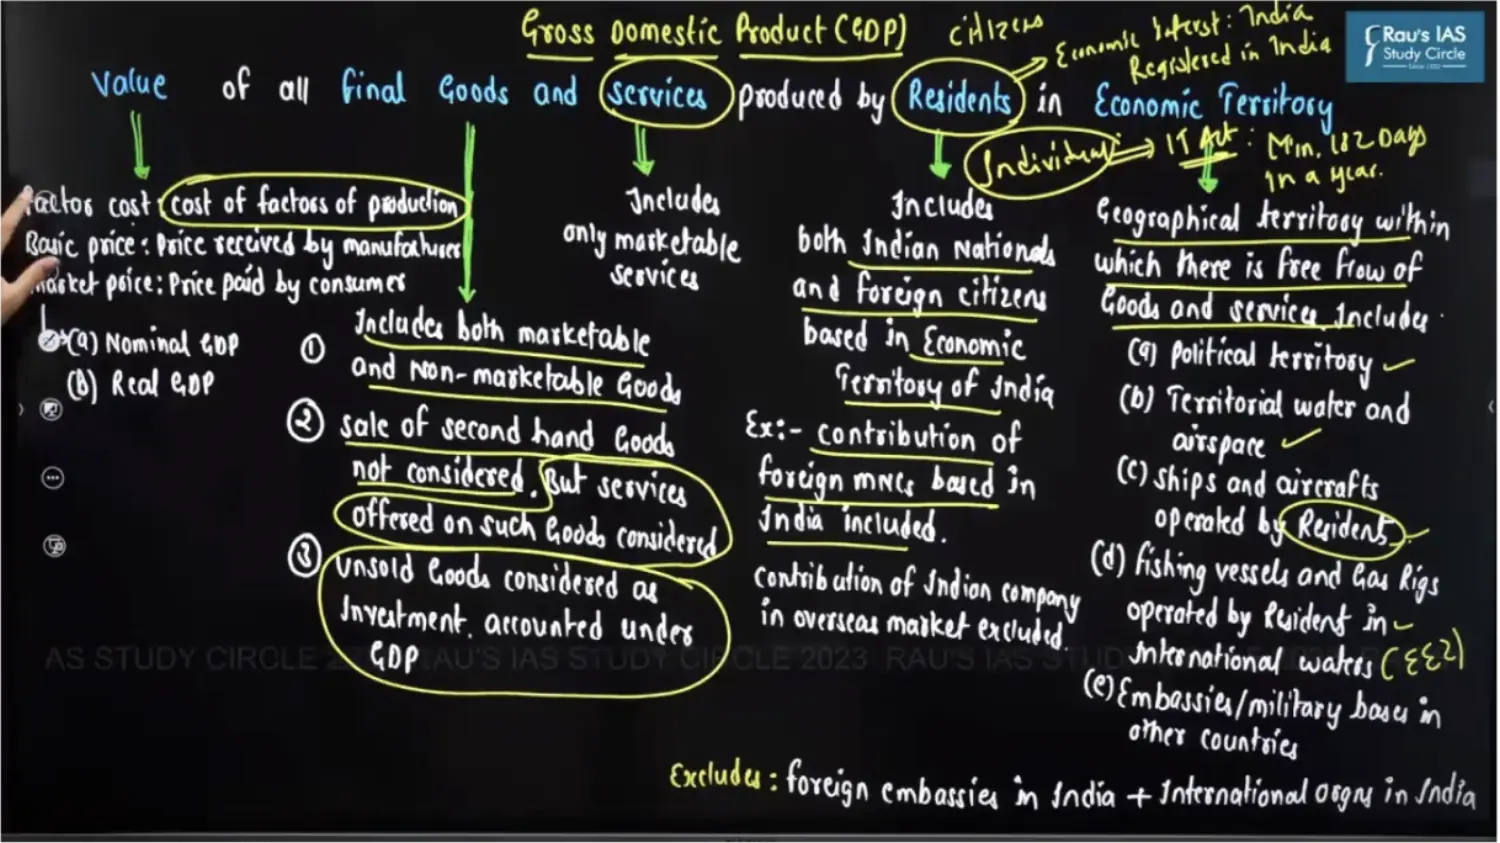 Gross Domestic Product (GDP)
citizens
Economic Interst: India
Registered in India
Rau's IAS
Study Circle
Value of all final Goods and services produced by Residents in Economic Territory
Individual
IT Act: Min. 182 Days
in a year.
factor cost: cost of factors of production
Basic price: Price received by manufacturer
market price: Price paid by consumer
(a) Nominal GDP
(b) Real GDP
① Includes both marketable
and Non-marketable Goods
② sale of second hand Goods
not considered. But services
offered on such Goods considered
③ unsold Goods considered as
Investment. accounted under
GDP
Includes
only marketable
services
Includes
both Indian Nationals
and foreign citizens
based in Economic
Territory of India
Ex:- contribution of
foreign MNCs based in
India included.
contribution of Indian company
in overseas market excluded.
Geographical territory within
which there is free flow of
Goods and services. Includes
(a) political territory
(b) Territorial water and
airspace
(c) ships and aircrafts
operated by Resident
(d) fishing vessels and Gas Rigs
operated by Resident in
International waters (EEZ)
(e) Embassies/military bases in
other countries
Excludes: foreign embassies in India + International orgns in India
AS STUDY CIRCLE 2023 RAU'S IAS STUDY CIRCLE 2023 RAU'S IAS